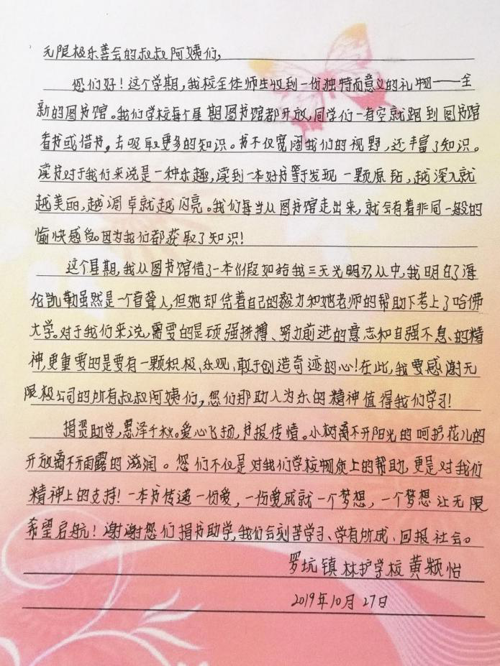 无限极乐善会的叔叔阿姨们，
您们好！这个学期，我校全体师生收到一份独特而意义的礼物——全
新的图书馆。我们学校每个星期图书馆都开放，同学们一有空就跑到图书馆
看书或借书，去吸取更多的知识。书不仅宽阔我们的视野，还丰富了知识。
读书对于我们来说是一种乐趣，读到一本好书等于发现一颗原钻，越深入就
越美丽，越调卓就越闪亮。我们每当从图书馆走出来，就会有着非同一般的
愉快感，因为我们都获取了知识！
这个星期，我从图书馆借了一本《假如给我三天光明》，从中，我明白了海
伦凯勒虽然是一个盲聋人，但她却凭着自己的毅力和她老师的帮助下考上了哈佛
大学。对于我们来说，需要的是顽强拼搏、努力前进的意志和自强不息的精
神，更重要的是要有一颗积极、乐观、敢于创造奇迹的心！在此，我要感谢无
限极公司的所有叔叔阿姨们，您们那助人为乐的精神值得我们学习！
捐资助学，恩泽千秋。爱心飞扬，书报传情。小树离不开阳光的呵护，花儿的
开放离不开雨露的滋润。您们不仅是对我们学校物质上的帮助，更是对我们
精神上的支持！一本书传递一份爱，一份爱成就一个梦想，一个梦想让无限
希望启航！谢谢您们捐书助学，我们会刻苦学习、学有所成、回报社会。
罗坑镇林护学校 黄颖怡
2019年10月27日